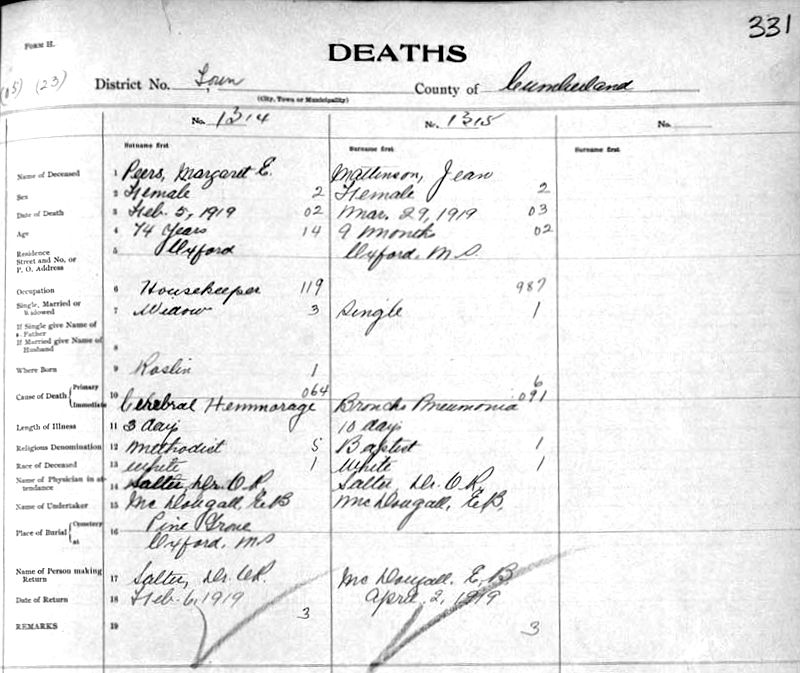 331
FORM H.
DEATHS
(05) (23)
District No. Town County of Cumberland
(City, Town or Municipality)
No. 1314 No. 1315 No.
Surname first Surname first Surname first
Name of Deceased 1 Peers, Margaret E. Mattinson, Jean
Sex 2 Female 2 Female 2
Date of Death 3 Feb. 5, 1919 02 Mar. 29, 1919 03
Age 4 74 years 14 9 months 02
Residence
Street and No. or 5 Oxford Oxford, N.S.
P. O. Address
Occupation 6 Housekeeper 119 987
Single, Married or
Widowed 7 Widow 3 Single 1
If Single give Name of
Father
If Married give Name of
Husband 8
Where Born 9 Roslin 1
6
Cause of Death Primary 064 091
Immediate 10 Cerebral Hemmorage Broncho Pneumonia
Length of Illness 11 3 days 10 days
Religious Denomination 12 Methodist 5 Baptist 1
Race of Deceased 13 White 1 White 1
Name of Physician in at-
tendance 14 Salter, Dr. O.R. Salter, Dr. O.R.
Name of Undertaker 15 Mc Dougall, E B McDougall, E.B.
Place of Burial Cemetery Pine Grove
at 16 Oxford, N S
Name of Person making
Return 17 Salter, Dr. O.R. McDougall, E.B.
Date of Return 18 Feb. 6, 1919 April 2, 1919
REMARKS 19 3 3